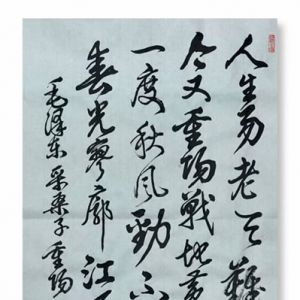 人生易老天難
今又重陽戰地黄
一度秋風勁不
春光寥廓江
毛澤东采桑子重陽